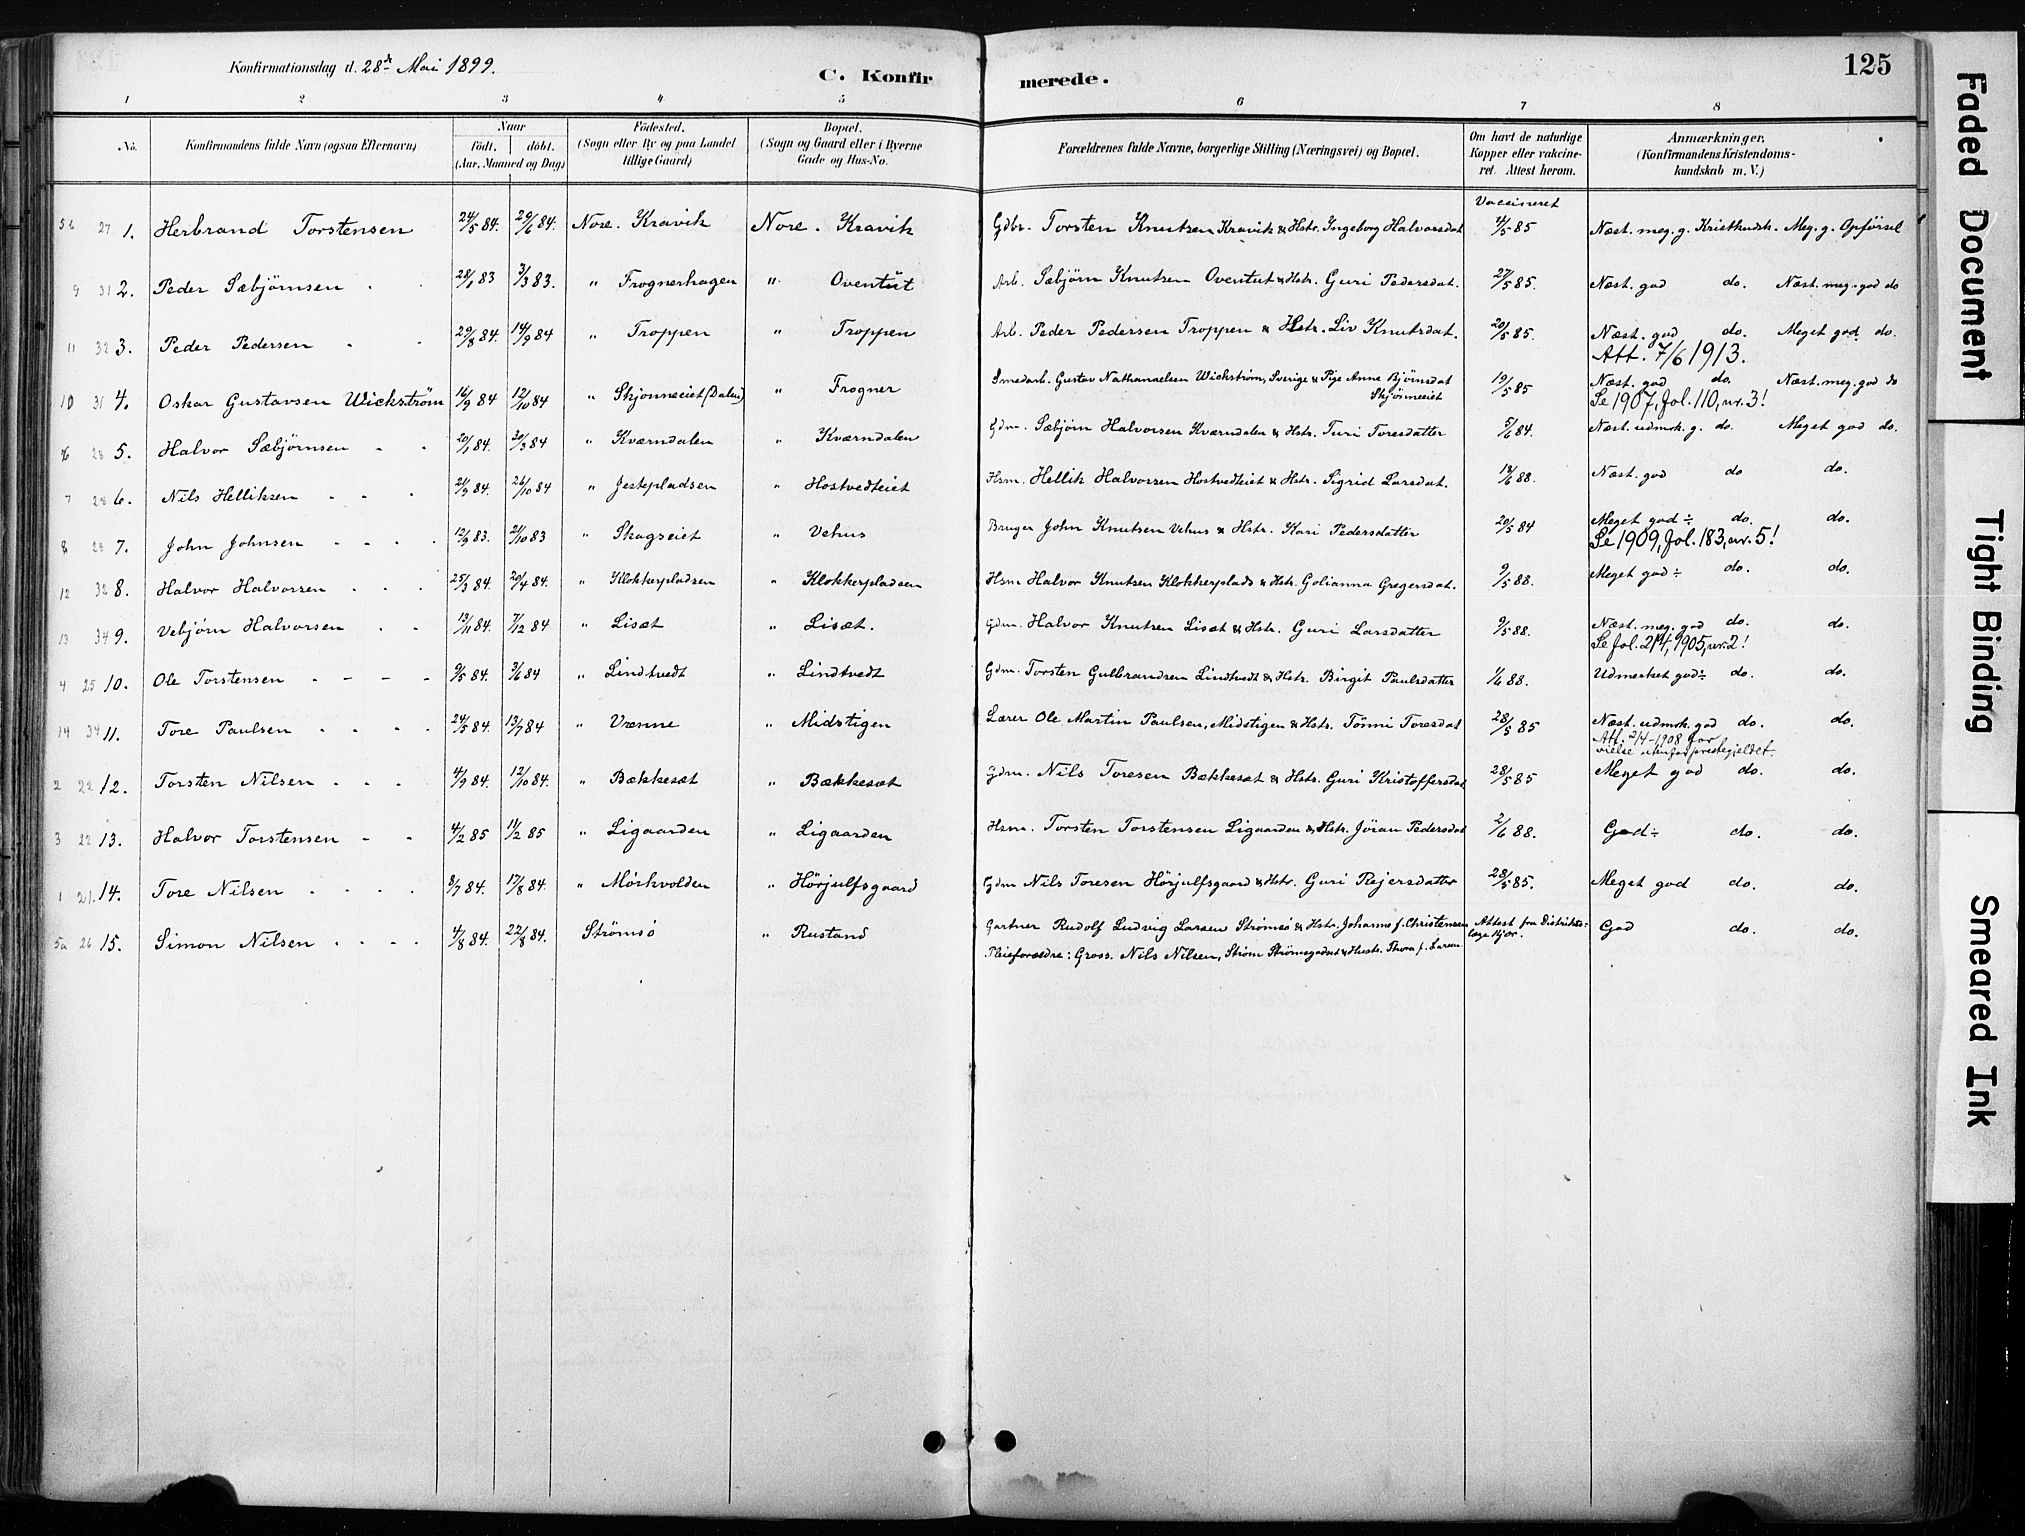 Konfirmationsdag d. 28de Mai 1899.
C. Konfirmerede.
125
1 2 3 4 5 6 7 8
No. Konfirmandens fulde Navn (ogsaa Efternavn)
Naar født. døbt. (Aar, Maaned og Dag)
Fødested. (Sogn eller By og paa Landet tillige Gaard)
Bopæl. (Sogn og Gaard eller i Byerne Gade og Hus-No.
Forældrenes fulde Navne, borgerlige Stilling (Næringsvei) og Bopæl.
Om havt de naturlige Kopper eller vakcineret. Attest herom.
Anmærkninger. (Konfirmandens Kristendomskundskab m. V.)
Vaccineret
1. Herbrand Torstensen 24/5 84. 29/6 84. Nore. Kravik Nore. Kravik Gdbr. Torsten Knutsen Kravik & Hstr. Ingeborg Halvorsdat 4/5 85 Næst. meg. g. Kristkndsk. Meg. g. Opførsel
9 31 2. Peder Sæbjørnsen 28/1 83 3/3 83. " Frognerhagen " Oventut Arb. Sæbjørn Knutsen Oventut & Hstr. Guri Pedersdat. 27/5 85. Næst. god do. Næst. meg. god do
11 32 3. Peder Pedersen 29/8 84. 14/9 84 " Troppen " Troppen Arb. Peder Pedersen Troppen & Hstr. Liv Knutsdat. 20/5 85. Næst. god do. Meget god do.
Att. 7/6 1913.
10 31 4. Oskar Gustavsen Wickstrøm 16/9 84 12/10 84 " Skjønneeiet (Dalen) " Frogner Smedarb. Gustav Nathanaelsen Wickstrøm, Sverige & Pige Anne Bjørnsdat Skjønneeiet 19/5 85 Næst. god do. Næst. meg. god do
Se 1907, fol. 110, nr. 3!
5. Halvor Sæbjørnsen 20/1 84. 30/3 84 " Kværndalen " Kværndalen Gdm. Sæbjørn Halvorsen Kværndalen & Hstr. Turi Toresdatter 5/6 84. Næst. udmrk. g. do. Meget god do.
7 28 6. Nils Helliksen 21/9 84. 26/10 84 " Jestepladsen " Hostvedteiet Hsm. Hellik Halvorsen Hostvedteiet & Hstr. Sigrid Larsdat. 19/6 88. Næst. god do do.
8 7. John Johnsen 12/9 83. 21/10 83 " Skagseiet " Vehus Bruger John Knutsen Vehus & Hstr. Kari Pedersdatter 20/5 84 Meget god ÷ do. do.
Se 1909, fol. 183, nr. 5!
12 32 8. Halvor Halvorsen 25/3 84. 20/4 84. " Klokkerpladsen " Klokkerpladsen Hsm Halvor Knutsen Klokkerplads & Hstr. Golianna Gregersdat. 9/5 88. Meget god ÷ do. do.
13 34 9. Vebjørn Halvorsen 13/11 84. 7/12 84 " Lisæt " Lisæt. Gdm. Halvor Knutsen Lisæt & Hstr. Guri Larsdatter 9/5 88. Næst. meg. god do. do.
Se fol. 214, 1905, nr. 2!
4 25 10. Ole Torstensen 9/5 84. 3/6 84 " Lindtvedt " Lindtvedt Gdm. Torsten Gulbrandsen Lindtvedt & Hstr. Birgit Paulsdatter 1/6 88. Udmerket god ÷ do. do.
14 34 11. Tore Paulsen 24/5 84. 13/7 84 " Vænne " Midstigen Lærer Ole Martin Paulsen, Midstigen & Hstr. Tønni Toresdat 28/5 85 Næst. udmrk. god do. do.
Att. 2/4-1908 for
vielse utenfor prestegjeldet
2 22 12. Torsten Nilsen 4/9 84. 12/10 84. " Bækkesæt " Bækkesæt Gdm. Nils Toresen Bækkesæt & Hstr. Guri Kristoffersdat 28/5 85 Meget god do. do.
3 22 13. Halvor Torstensen 4/2 85 11/2 85 " Ligaarden " Ligaarden Hsm. Torsten Torstensen Ligaarden & Hstr. Jøran Pedersdat 2/6 88. God ÷ do. do.
1 21. 14. Tore Nilsen 8/7 84. 17/8 84. " Mørkvolden " Hørjulfsgaard Gdm Nils Toresen Hørjulfsgaard & Hstr. Guri Rejersdatter 28/5 85. Meget god do. do.
5a 26 15. Simon Nilsen 4/8 84. 22/8 84. Strømsø " Rustand Gartner Rudolf Ludvig Larsen Strømsø & Hstr. Johanne f. Christensen Attest fra Distriktslæge Kjør. God do. do.
Pleieforældre: Gross. Nils Nilsen, Strøm Strømsgodset & Hustr. Thora f. Larsen
Faded Document
Tight Binding
Smeared Ink